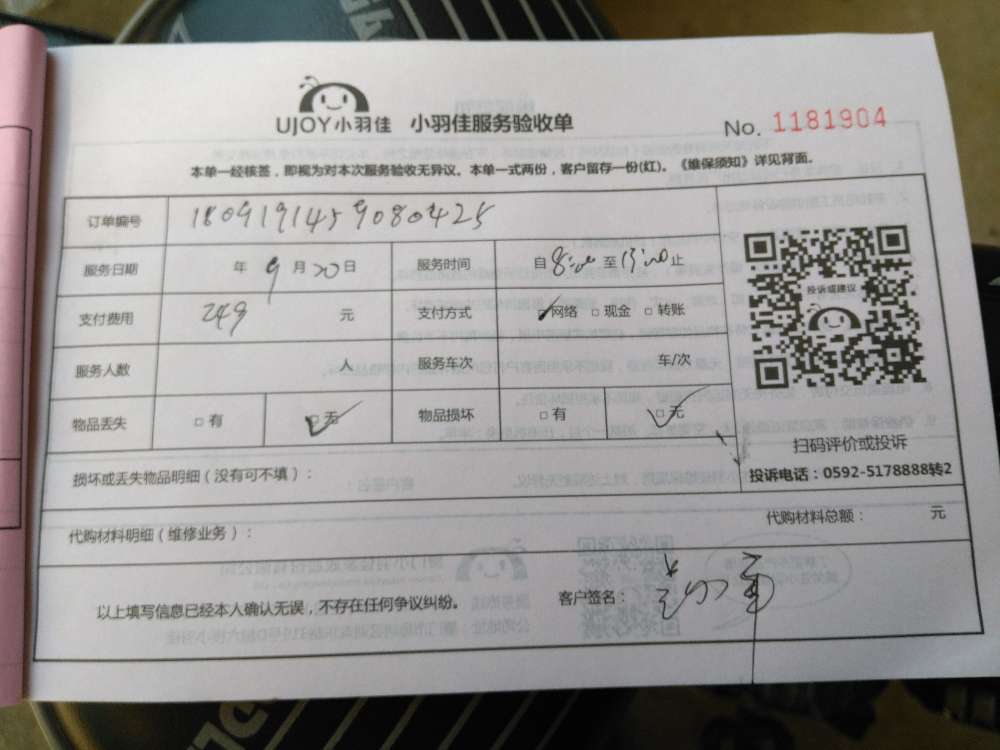 UJOY小羽佳 小羽佳服务验收单 No. 1181904
本单一经核签，即视为对本次服务验收无异议。本单一式两份，客户留存一份(红)。《维保须知》详见背面。
订单编号 1809191459080425
服务日期 年 9 月 20 日 服务时间 自 8:00 至 13:00 止
投诉或建议
支付费用 249 元 支付方式 ☑网络 □现金 □转账
服务人数 人 服务车次 车/次
物品丢失 □有 ☑无 物品损坏 □有 ☑无
扫码评价或投诉
投诉电话：0592-5178888转2
损坏或丢失物品明细（没有可不填）：
代购材料明细（维修业务）： 代购材料总额： 元
以上填写信息已经本人确认无误，不存在任何争议纠纷。 客户签名：